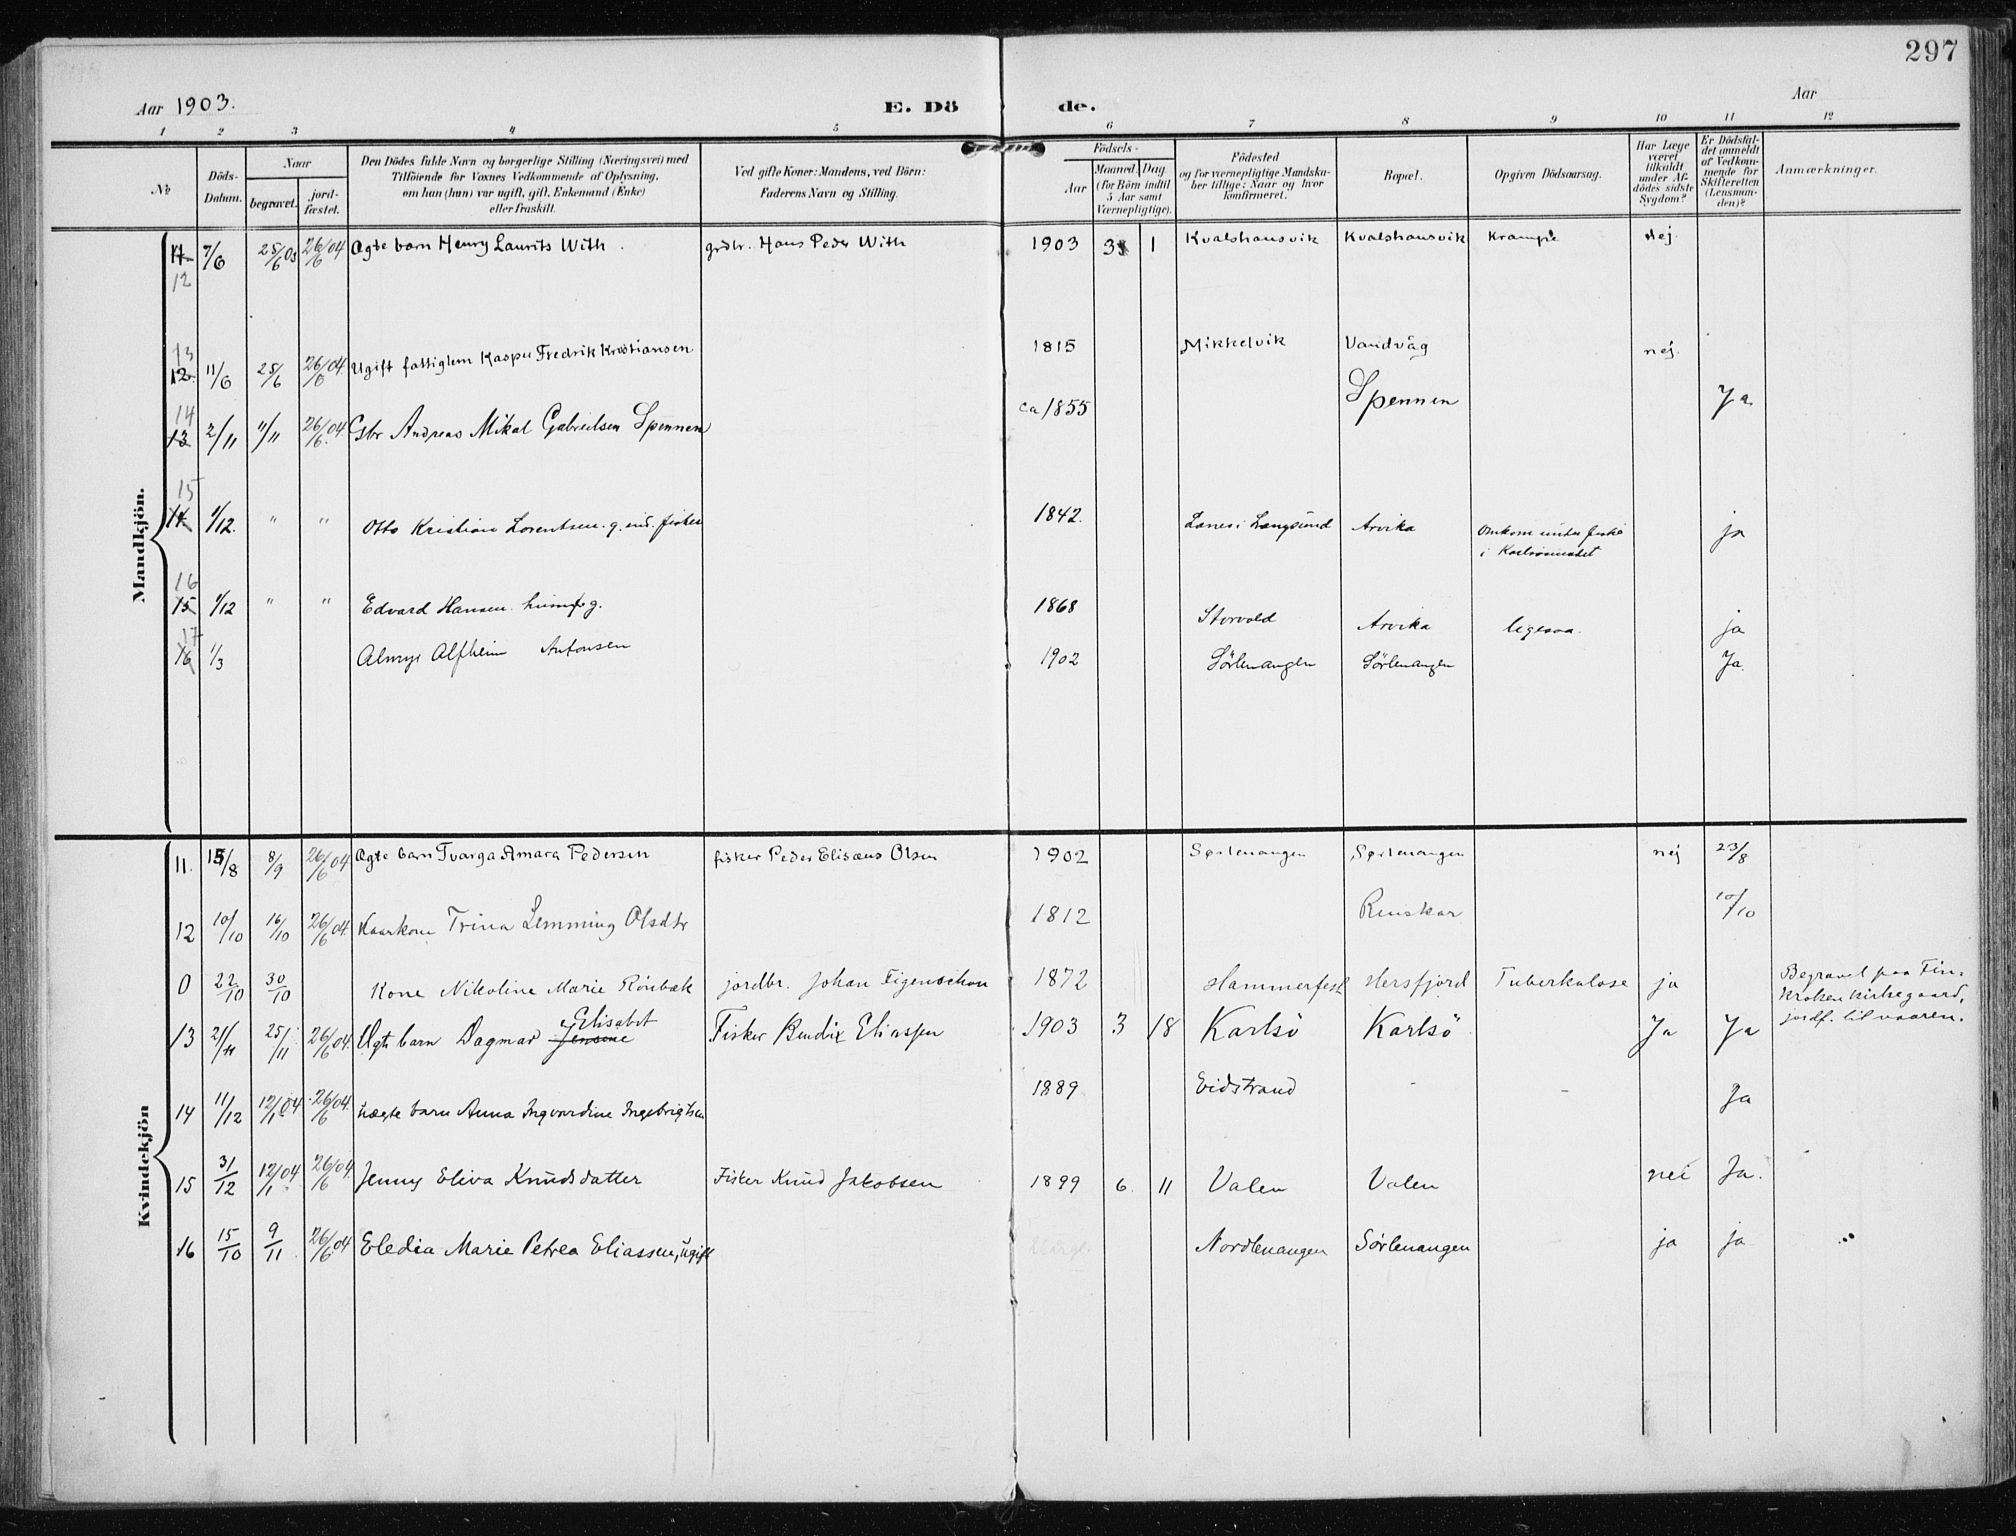 297
Aar 1903.
E. Dö de.
Aar
1 2 3 4 5 6 7 8 9 10 11 12
No
Döds-Datum.
Naar
begravet.
jord-fæstet.
Den Dödes fulde Navn og borgerlige Stilling (Næringsvei) med
Tilföiende for Voxnes Vedkommende af Oplysning,
om han (hun) var ugift, gift, Enkemand (Enke)
eller fraskilt.
Ved gifte Koner: Mandens, ved Börn:
Faderens Navn og Stilling.
Födsels-
Aar
Maaned. Dag
(for Börn indtil
5 Aar samt
Værnepligtige).
Födested
og for værnepligtige Mandsku-
ber tillige: Naar og hvor
konfirmeret.
Bopæl.
Opgiven Dödsaarsag.
Har Læge
været
tilkaldt
under Af-
dödes sidste
Sygdom?
Er Dödsfal-
det anmeldt
af Vedkom-
mende for
Skifteretten
(Lensman-
den)?
Anmærkninger.
Mandkjön.
11 12 7/6 25/6 03 26/6 04 Ægte barn Henry Laurits With grdbr. Hans Peder With 1903 3 1 Kvalshausvik Kvalshausvik Krampe Nej.
13 12 11/6 25/6 26/6 04 Ugift fattiglem Kasper Fredrik Kristiansen 1815 Mikkelvik Vandvåg nej.
14 13 2/11 11/11 26/6 04 Gbr Andreas Mikal Gabrielsen Spennen ca 1855 Spennen Ja
15 14 1/12 " " Otto Kristian Lorentsen. g. fisker 1842. Lanes i Langsund Arvika Omkom under fiske
i Karlsøsundet ja
16 15 1/12 " " Edvard Hansen g. 1868 Storvold Arvika ligesaa. ja
17 16 1/3 Alfheim Antonsen 1902 Sörlenangen Sörlenangen Ja.
Kvindekjön
11. 15/8 8/9 26/6 04 Ægte barn Tvarga Amara Pedersen fisker Peder Elisæus Olsen 1902 Sørlenangen Sørlenangen nej 23/8
12 10/10 16/10 26/6 04. Kaarkone Trina Lemming Olsdtr 1812 Renskar 10/10
0 22/10 30/10 Kone Nikoline Marie Rönbæk jordbr. Johan Figenschou 1872 Hammerfest Hersfjord Tuberkulose ja Begravet paa Fin-
kroken kirkegaard,
jordf. til vaaren.
13 21/11 25/11 26/6 04. Ægte barn Dagmar Jensine Elisabet Fisker Bendix Eliassen 1903 3 18 Karlsö Karlsö Ja Ja
14 11/12 12/1 04 26/6 04. uægte barn Anna Ingvardine Ingebrigtsen 1889 Eidstrand - - Ja
15 31/12 12/1 04 26/6 04. Jenny Eliva Knudsdatter Fisker Knud Jakobsen 1899 6. 11 Valen Valen nei Ja.
16 15/10 9/11 26/6 04 Eledia Marie Petrea Eliassen, ugift Nordlenangen Sörlenangen ja ja